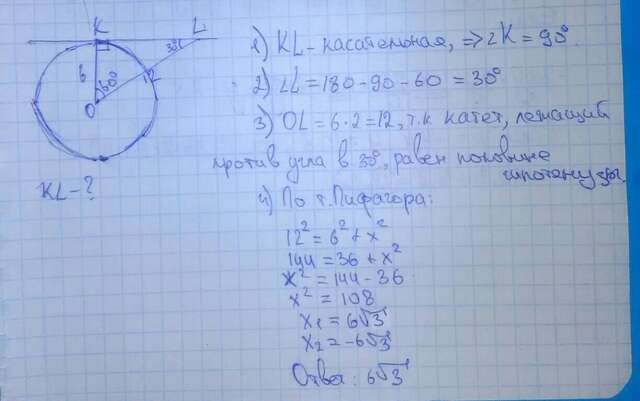 K L
30°
6 60° 12
O
KL-?
1) KL - касательная, => ∠K = 90°.
2) ∠L = 180 - 90 - 60 = 30°
3) OL = 6·2 = 12, т.к. катет, лежащий
против угла в 30°, равен половине
гипотенузы.
4) По т. Пифагора:
12² = 6² + x²
144 = 36 + x²
x² = 144 - 36
x² = 108
x₁ = 6√3
x₂ = -6√3
Ответ: 6√3